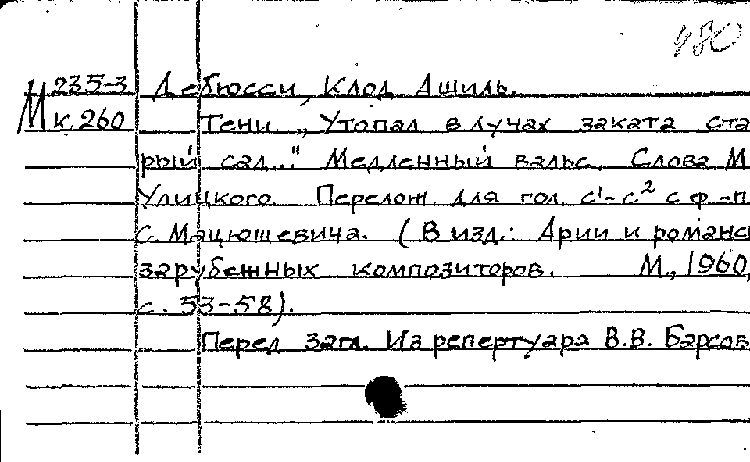 М 235-3 Дебюсси, Клод Ашиль.
к 260 Тени „Утопал в лучах заката ста
рый сад..." Медленный вальс. Слова М.
Улицкого. Перелож. для гол. с¹-с² с ф-п
С. Мацюшевича. (В изд.: Арии и романс
зарубежных композиторов. М., 1960,
с. 53-58).
Перед загл. Из репертуара В.В. Барсов